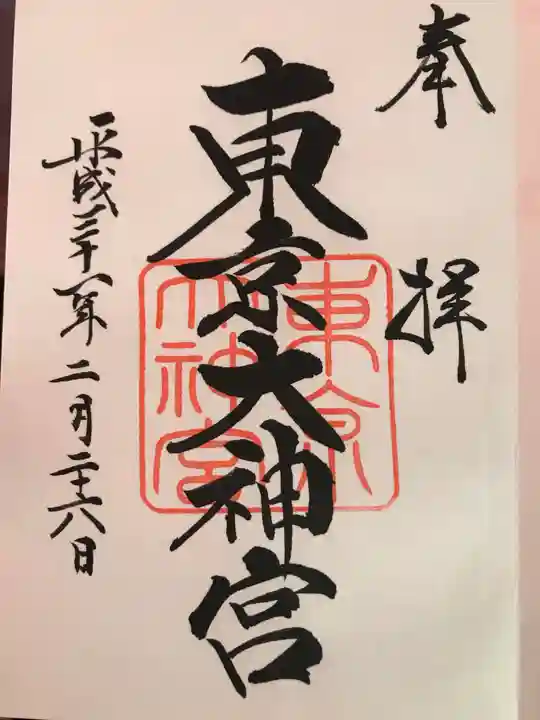 奉拝
東京大神宮
東京大神宮
平成二十八年二月二十六日